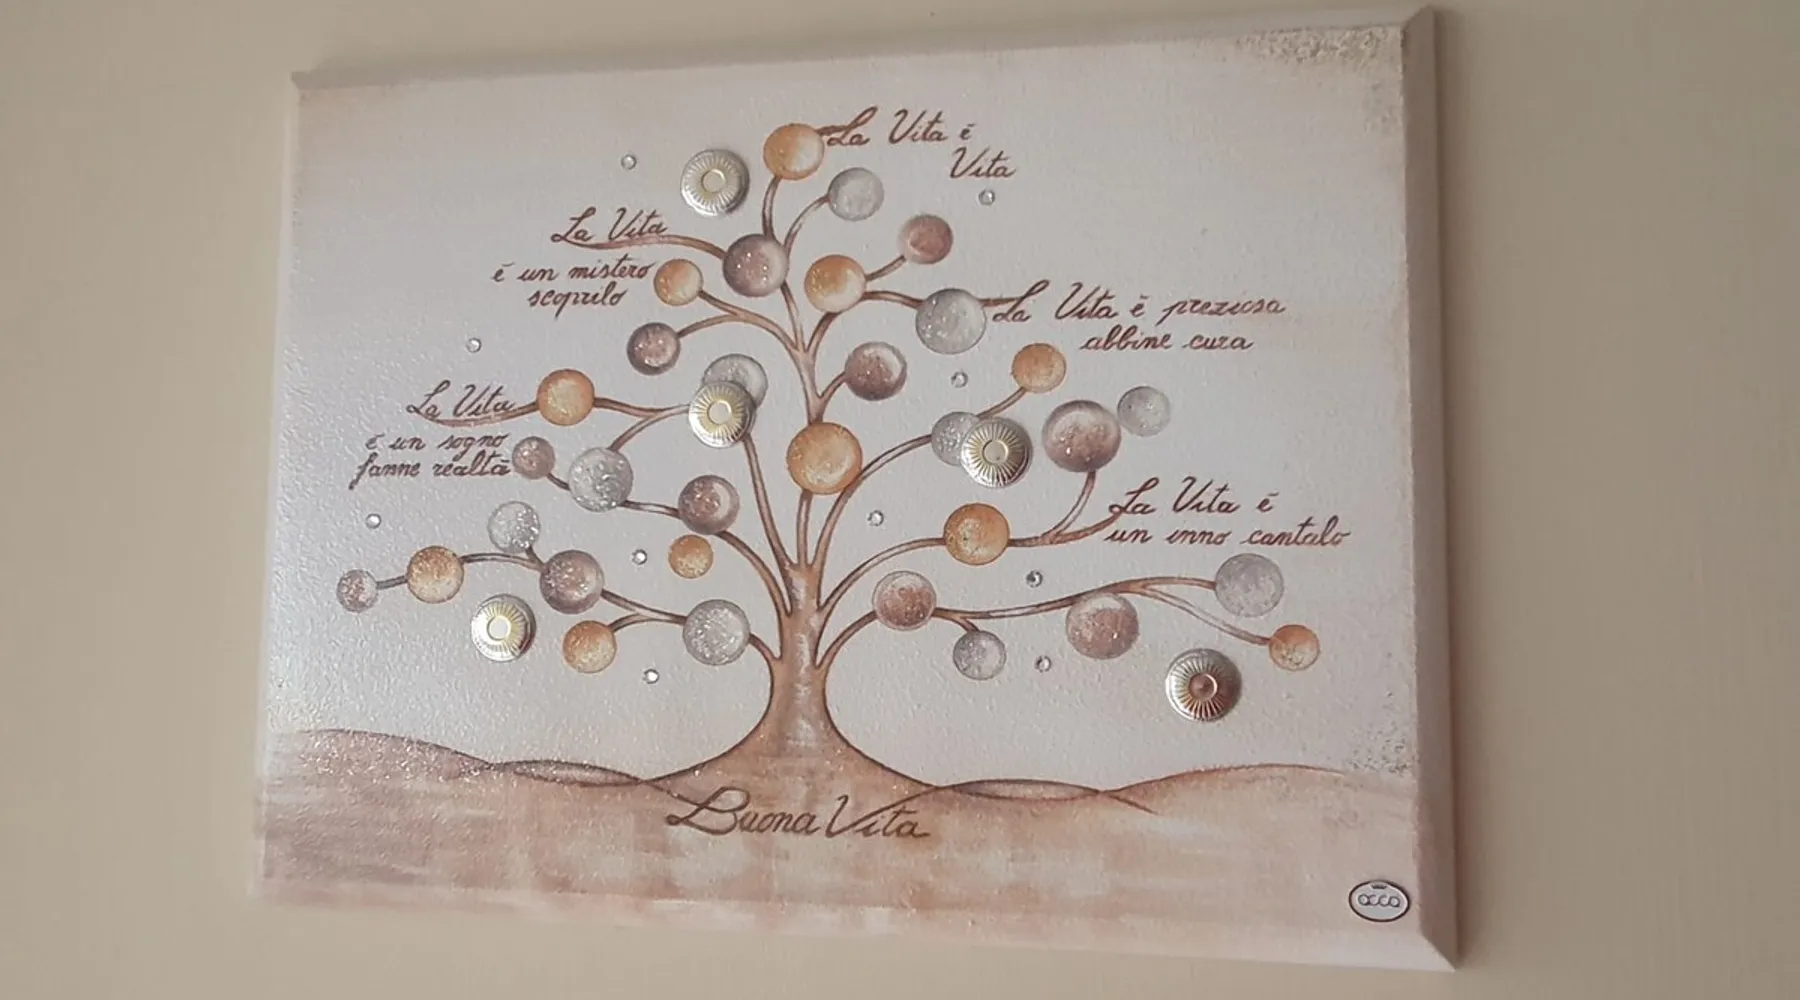 La Vita è
Vita
La Vita
è un mistero
scoprilo
La Vita è preziosa
abbine cura
La Vita
è un sogno
fanne realtà
La Vita è
un inno cantalo
Buona Vita
acca